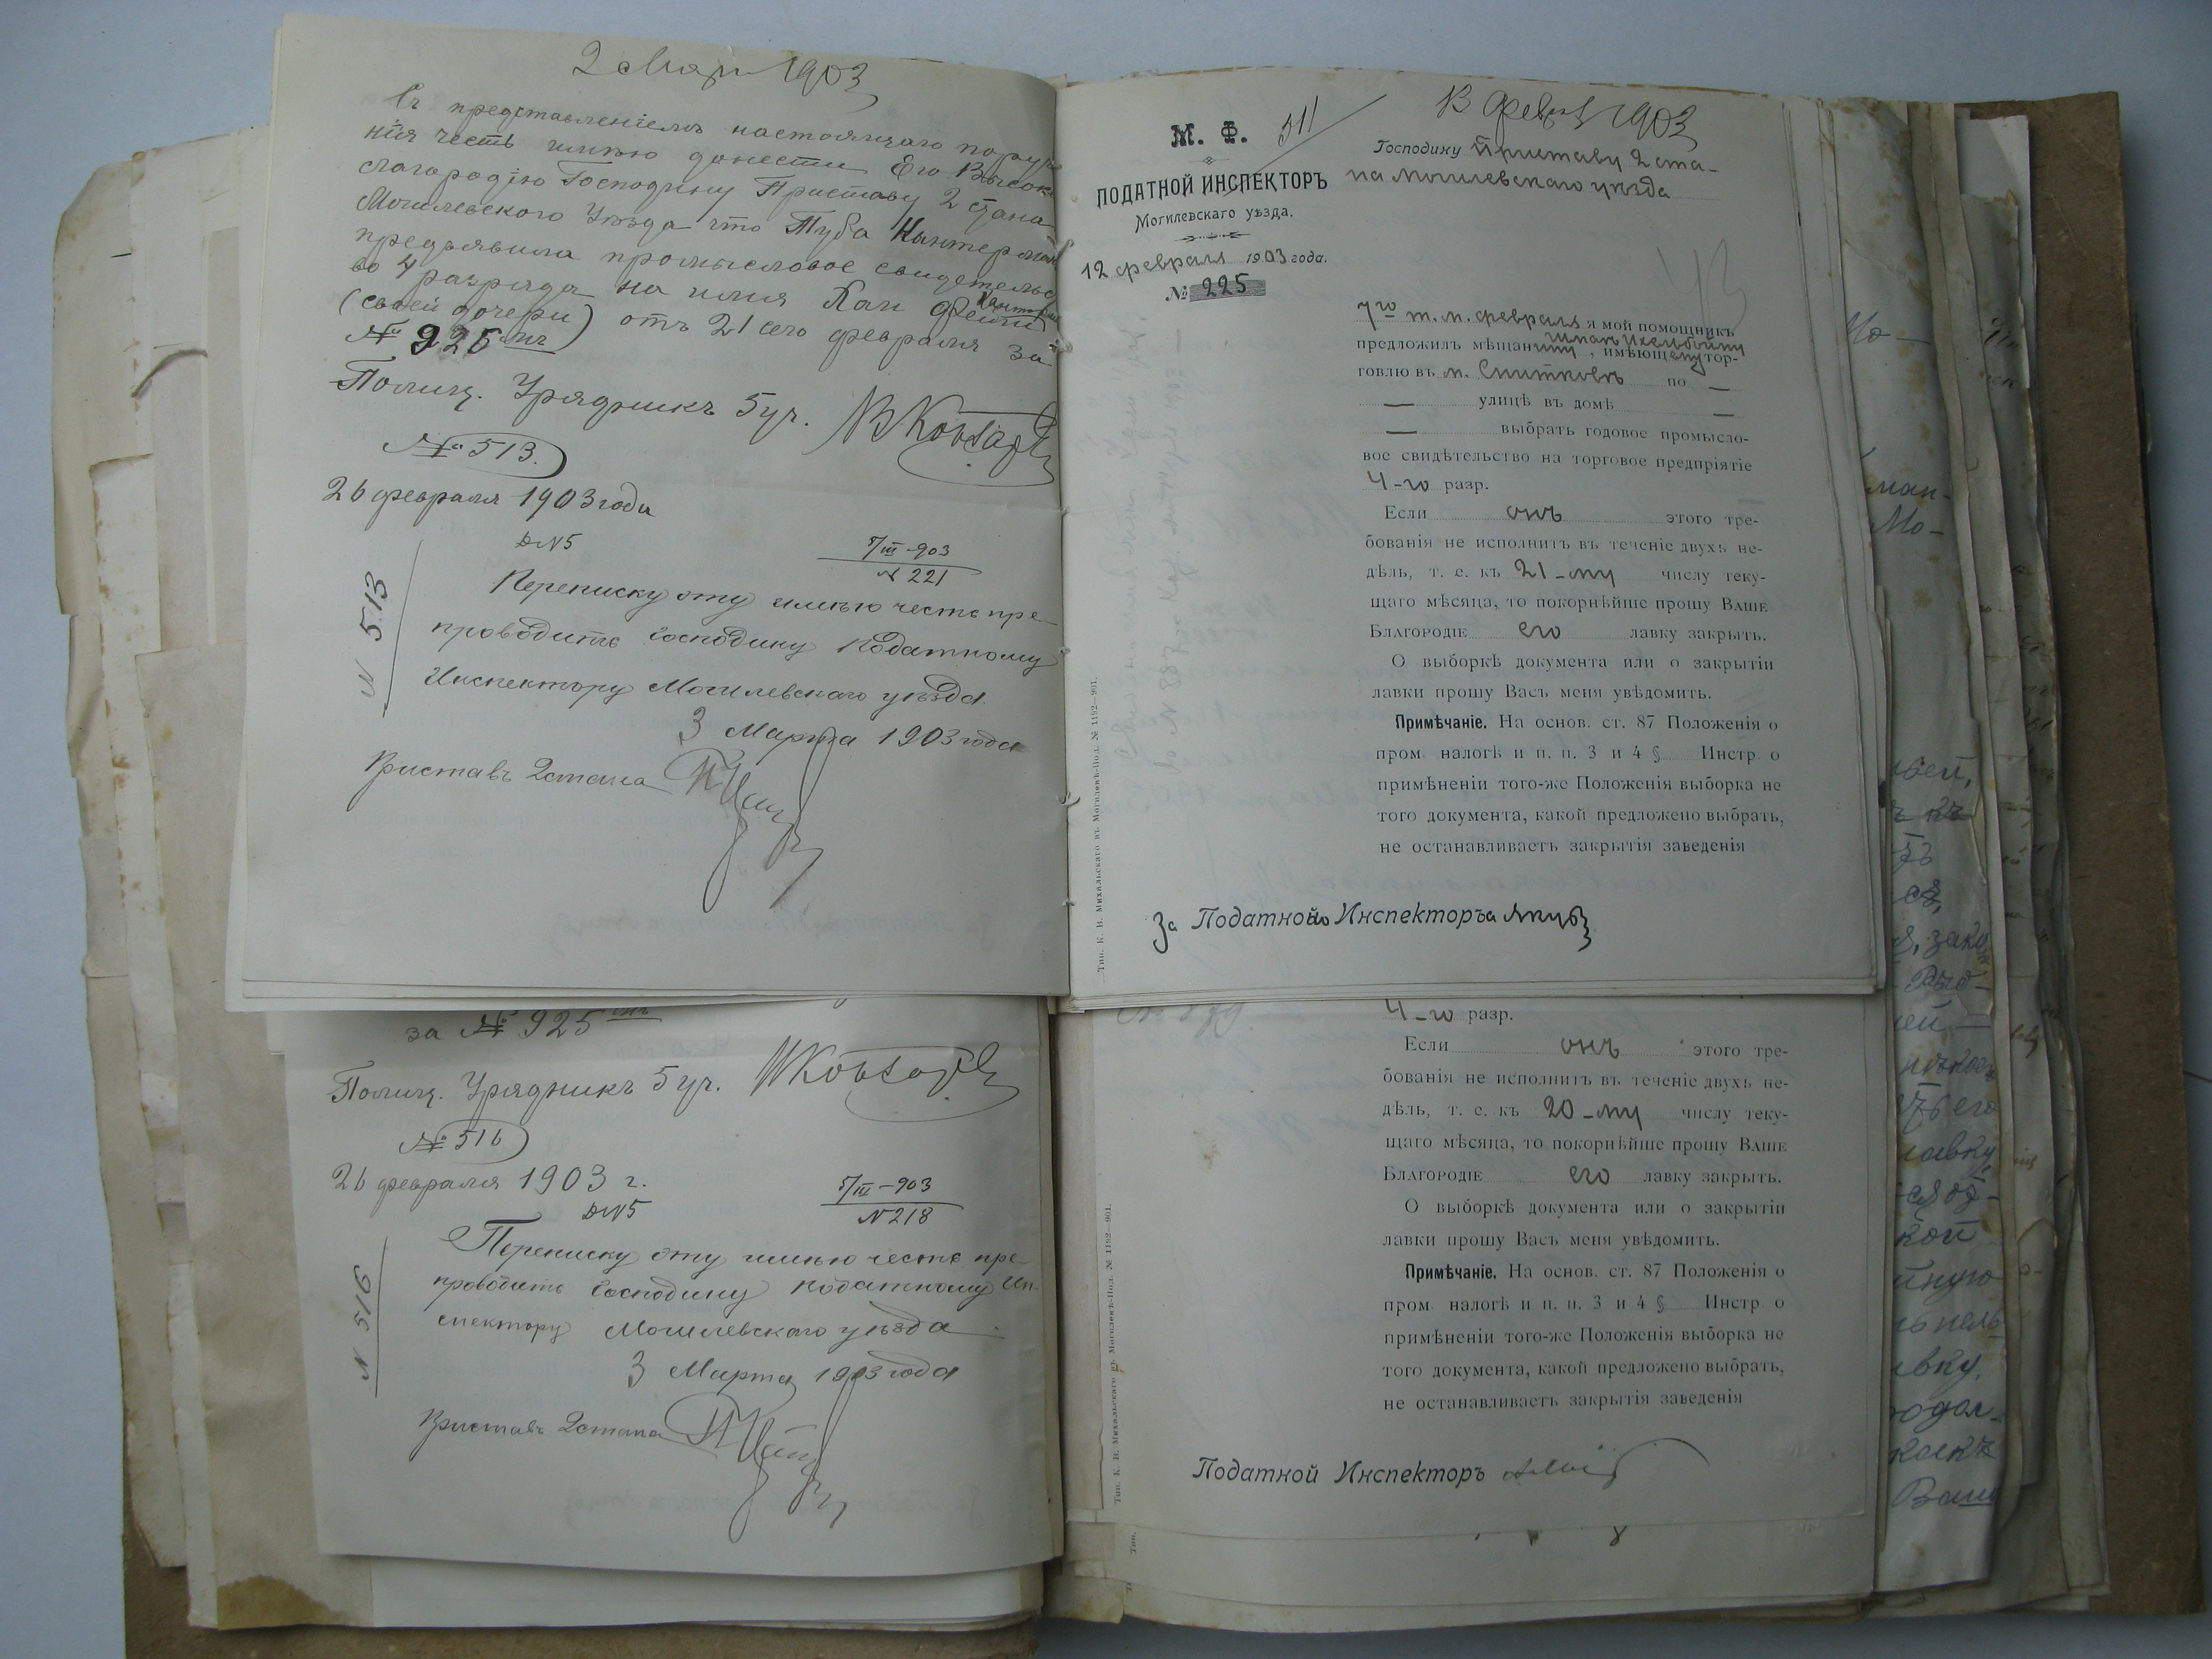 2 Марта 1903
Съ представленіемъ настоящаго поруче
нія честь имѣю донести Его Высоко
благородію Господину Приставу 2 стана
Могилевского Уѣзда что Туба Кантерман
предъявила промысловое свидетельст
во 4 разряда на имя Хаи Фейги
Кантерман
(своей дочери) отъ 21 сего февраля за
№ 925
Полиц. Урядникъ 5 уч.
№ 513.
26 февраля 1903 года
Д N5
5/III-903
N 221
N 513
Переписку эту имѣю честь пре-
проводить Господину Податному
Инспектору Могилевскаго уѣзда.
3 Марта 1903 года
Приставъ 2 стана
за № 925
Полиц. Урядникъ 5 уч.
№ 516
26 февраля 1903 г.
Д N5
5/III-903
N 218
N 516
Переписку эту имѣю честь пре-
проводить Господину Податному Ин-
спектору Могилевскаго уѣзда.
3 Марта 1903 года
Приставъ 2 стана
М. Ф.
511
ПОДАТНОЙ ИНСПЕКТОРЪ
Могилевскаго уѣзда.
12 февраля 1903 года.
№ 225
13 февр 1903
Господину Приставу 2 ста-
на Могилевскаго уѣзда
7го т. м. февраля я мой помощникъ
предложилъ мѣщанину, имѣющему тор-
говлю въ м. Снитковѣ по —
— улицѣ въ домѣ —
— выбрать годовое промысло-
вое свидѣтельство на торговое предпріятіе
4-го разр.
Если онъ этого тре-
бованія не исполнитъ въ теченіе двухъ не-
дѣль, т. е. къ 21-му числу теку-
щаго мѣсяца, то покорнѣйше прошу Ваше
Благородіе его лавку закрыть.
О выборкѣ документа или о закрытіи
лавки прошу Васъ меня увѣдомить.
Примѣчаніе. На основ. ст. 87 Положенія о
пром. налогѣ и п. п. 3 и 4 § Инстр о
примѣненіи того-же Положенія выборка не
того документа, какой предложено выбрать,
не останавливаетъ закрытія заведенія
За Податного Инспектора
Тип. К. В. Михальскаго въ Могилевѣ-Под. № 1192—901.
4-го разр.
Если онъ этого тре-
бованія не исполнитъ въ теченіе двухъ не-
дѣль, т. е. къ 20-му числу теку-
щаго мѣсяца, то покорнѣйше прошу Ваше
Благородіе его лавку закрыть.
О выборкѣ документа или о закрытіи
лавки прошу Васъ меня увѣдомить.
Примѣчаніе. На основ. ст. 87 Положенія о
пром. налогѣ и п. п. 3 и 4 § Инстр о
примѣненіи того-же Положенія выборка не
того документа, какой предложено выбрать,
не останавливаетъ закрытія заведенія
Податной Инспекторъ
Тип. К. В. Михальскаго въ Могилевѣ-Под. № 1192—901.